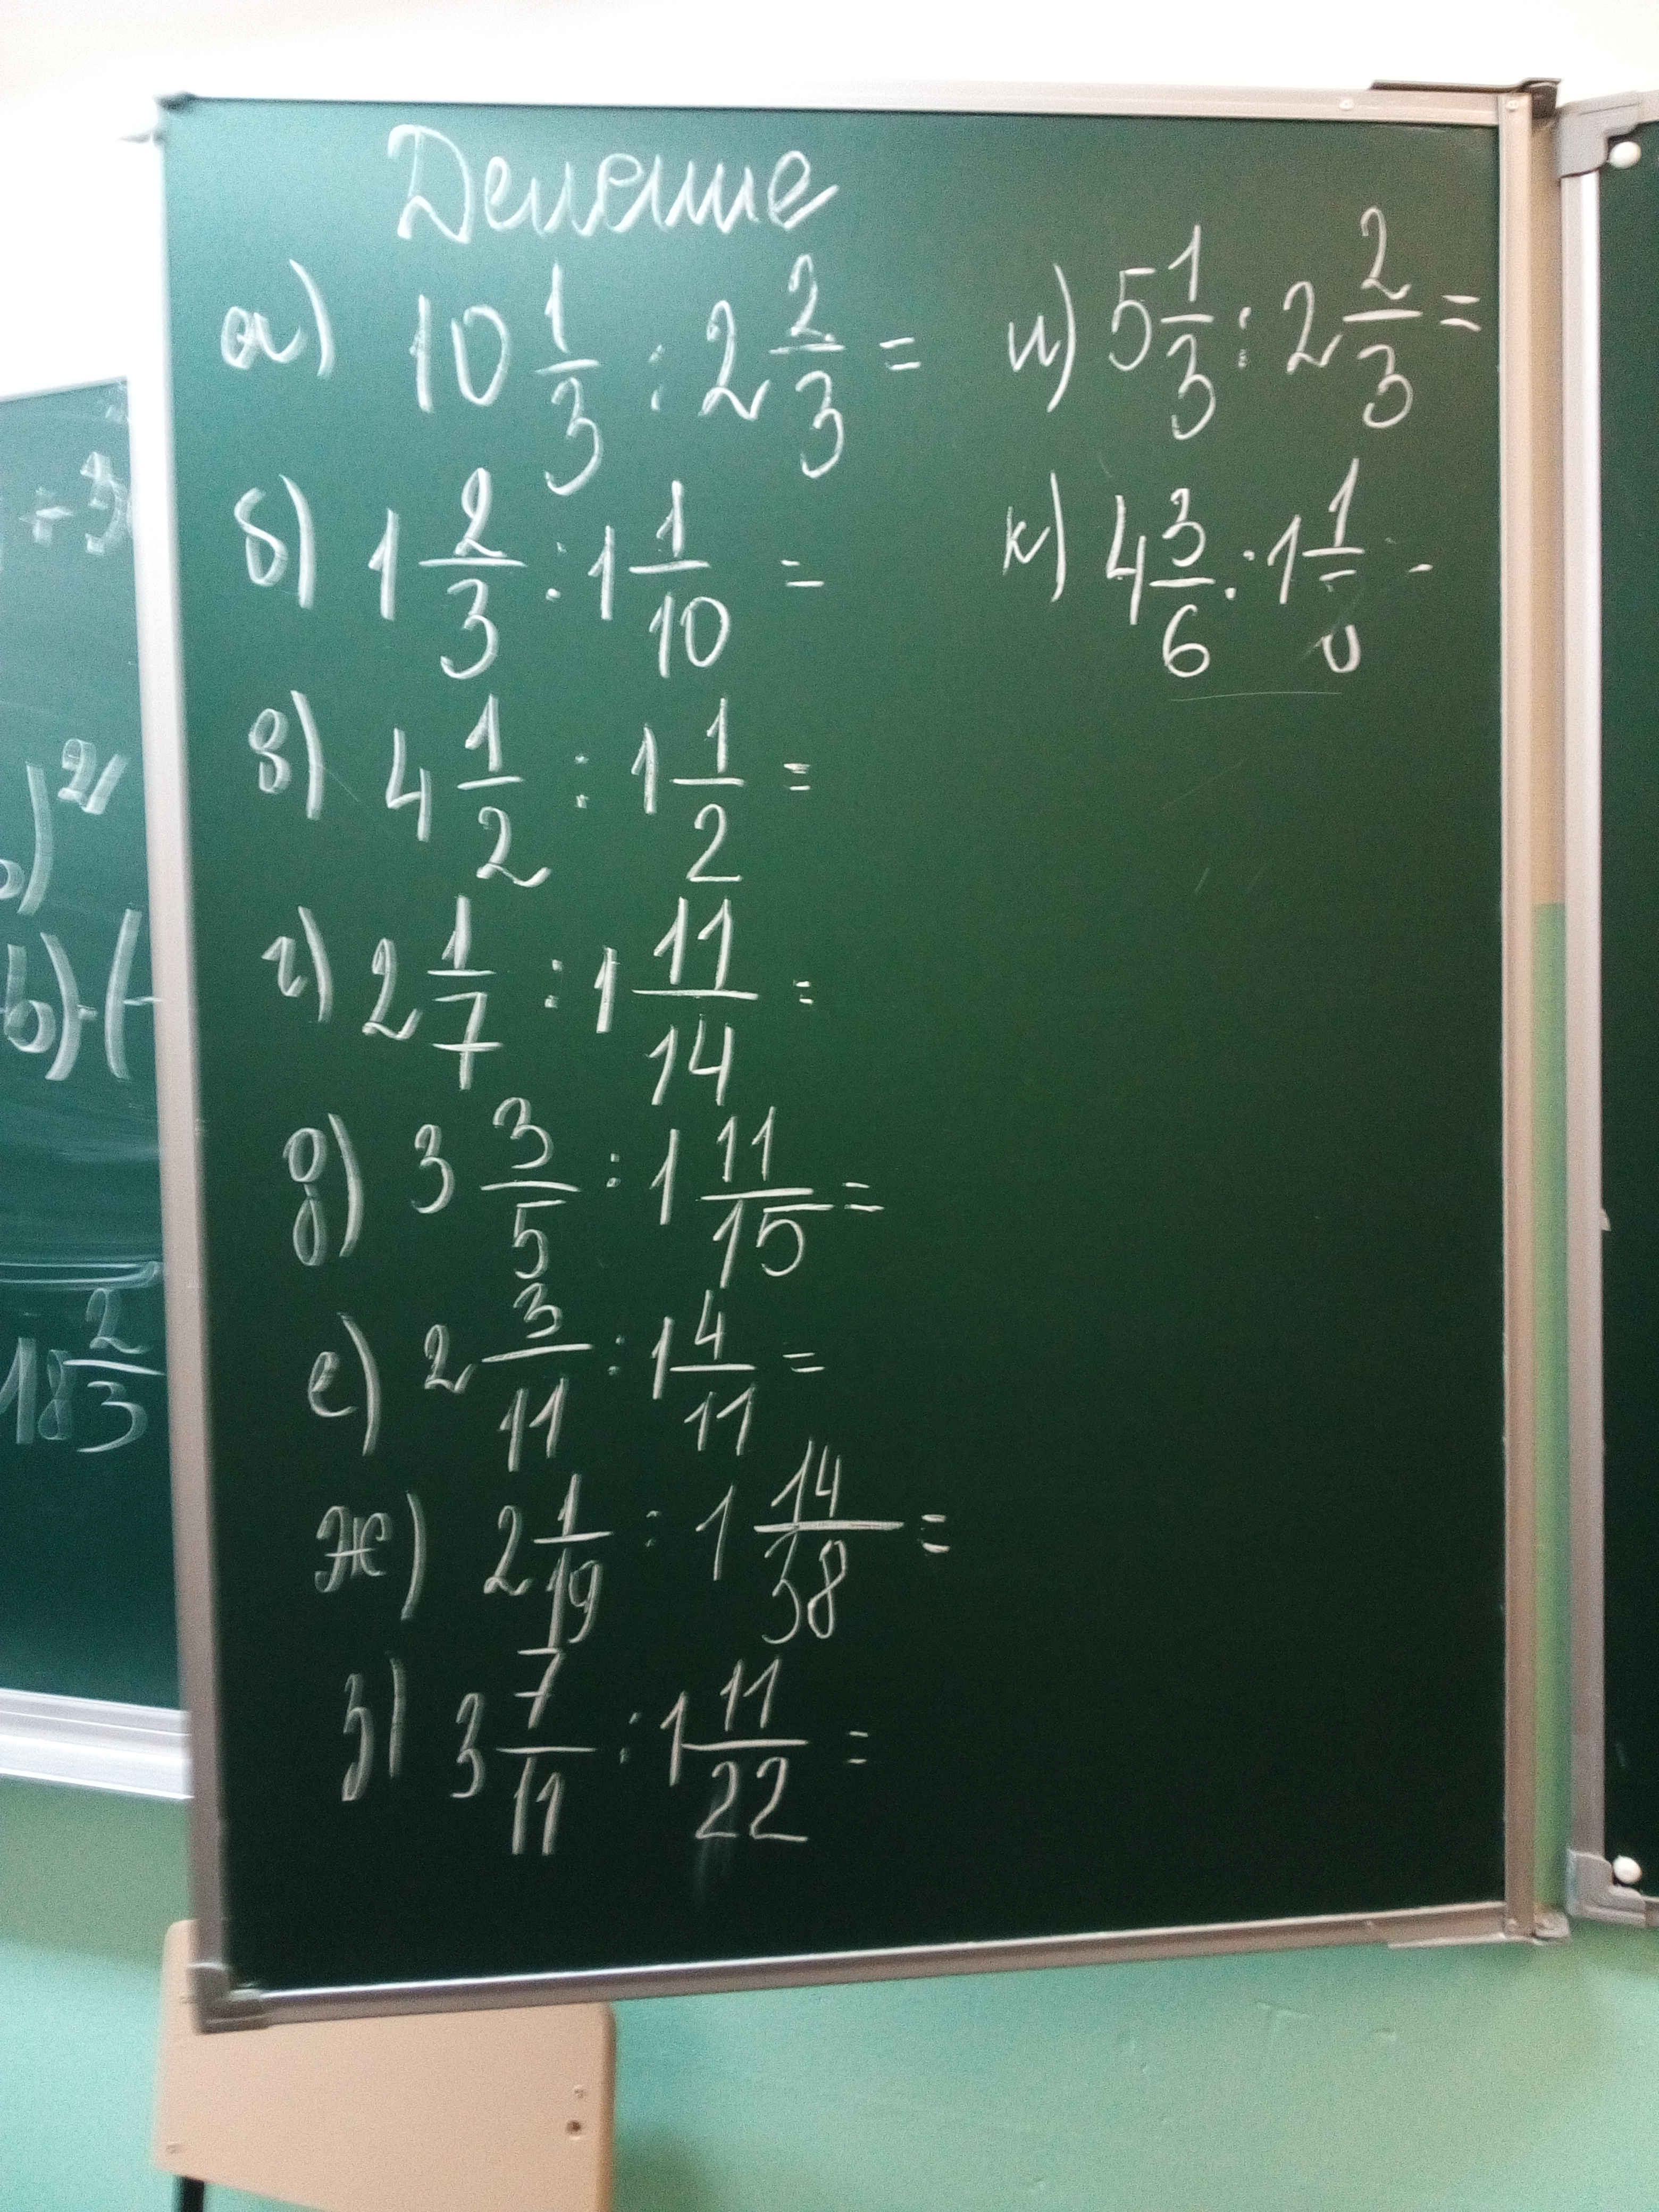 Деление
а) 10 1/3 : 2 2/3 =
б) 1 2/3 : 1 1/10 =
в) 4 1/2 : 1 1/2 =
г) 2 1/7 : 1 11/14 =
д) 3 3/5 : 1 11/15 =
е) 2 3/11 : 1 4/11 =
ж) 2 1/19 : 1 14/38 =
з) 3 7/11 : 1 11/22 =
и) 5 1/3 : 2 2/3 =
к) 4 3/6 : 1 1/
18 2/3